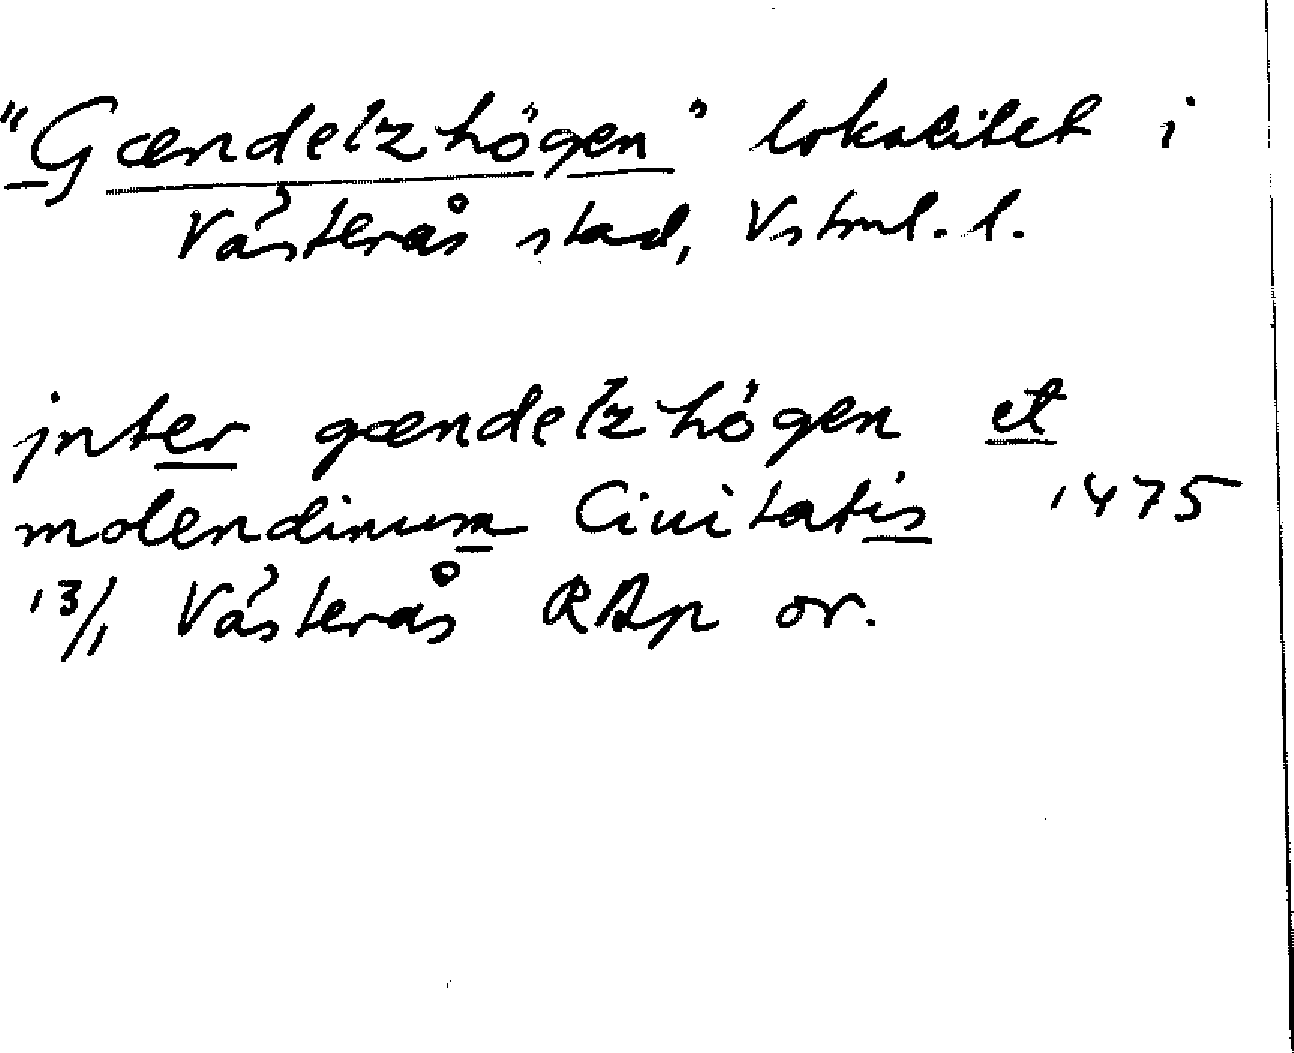 "Gændelzhögen" lokalitet i
Västerås stad, Vstml. l.
jnter gændelzhögen et
molendinum Ciuitatis 1475
13/1 Västerås RAp or.